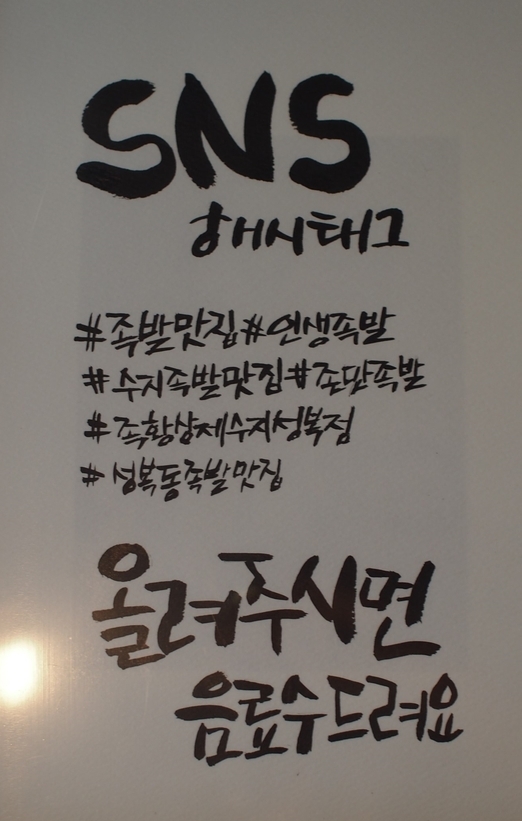 SNS
해시태그
#족발맛집#인생족발
#수지족발맛집#존맛족발
#족황상제수지성복점
#성복동족발맛집
올려주시면
음료수드려요